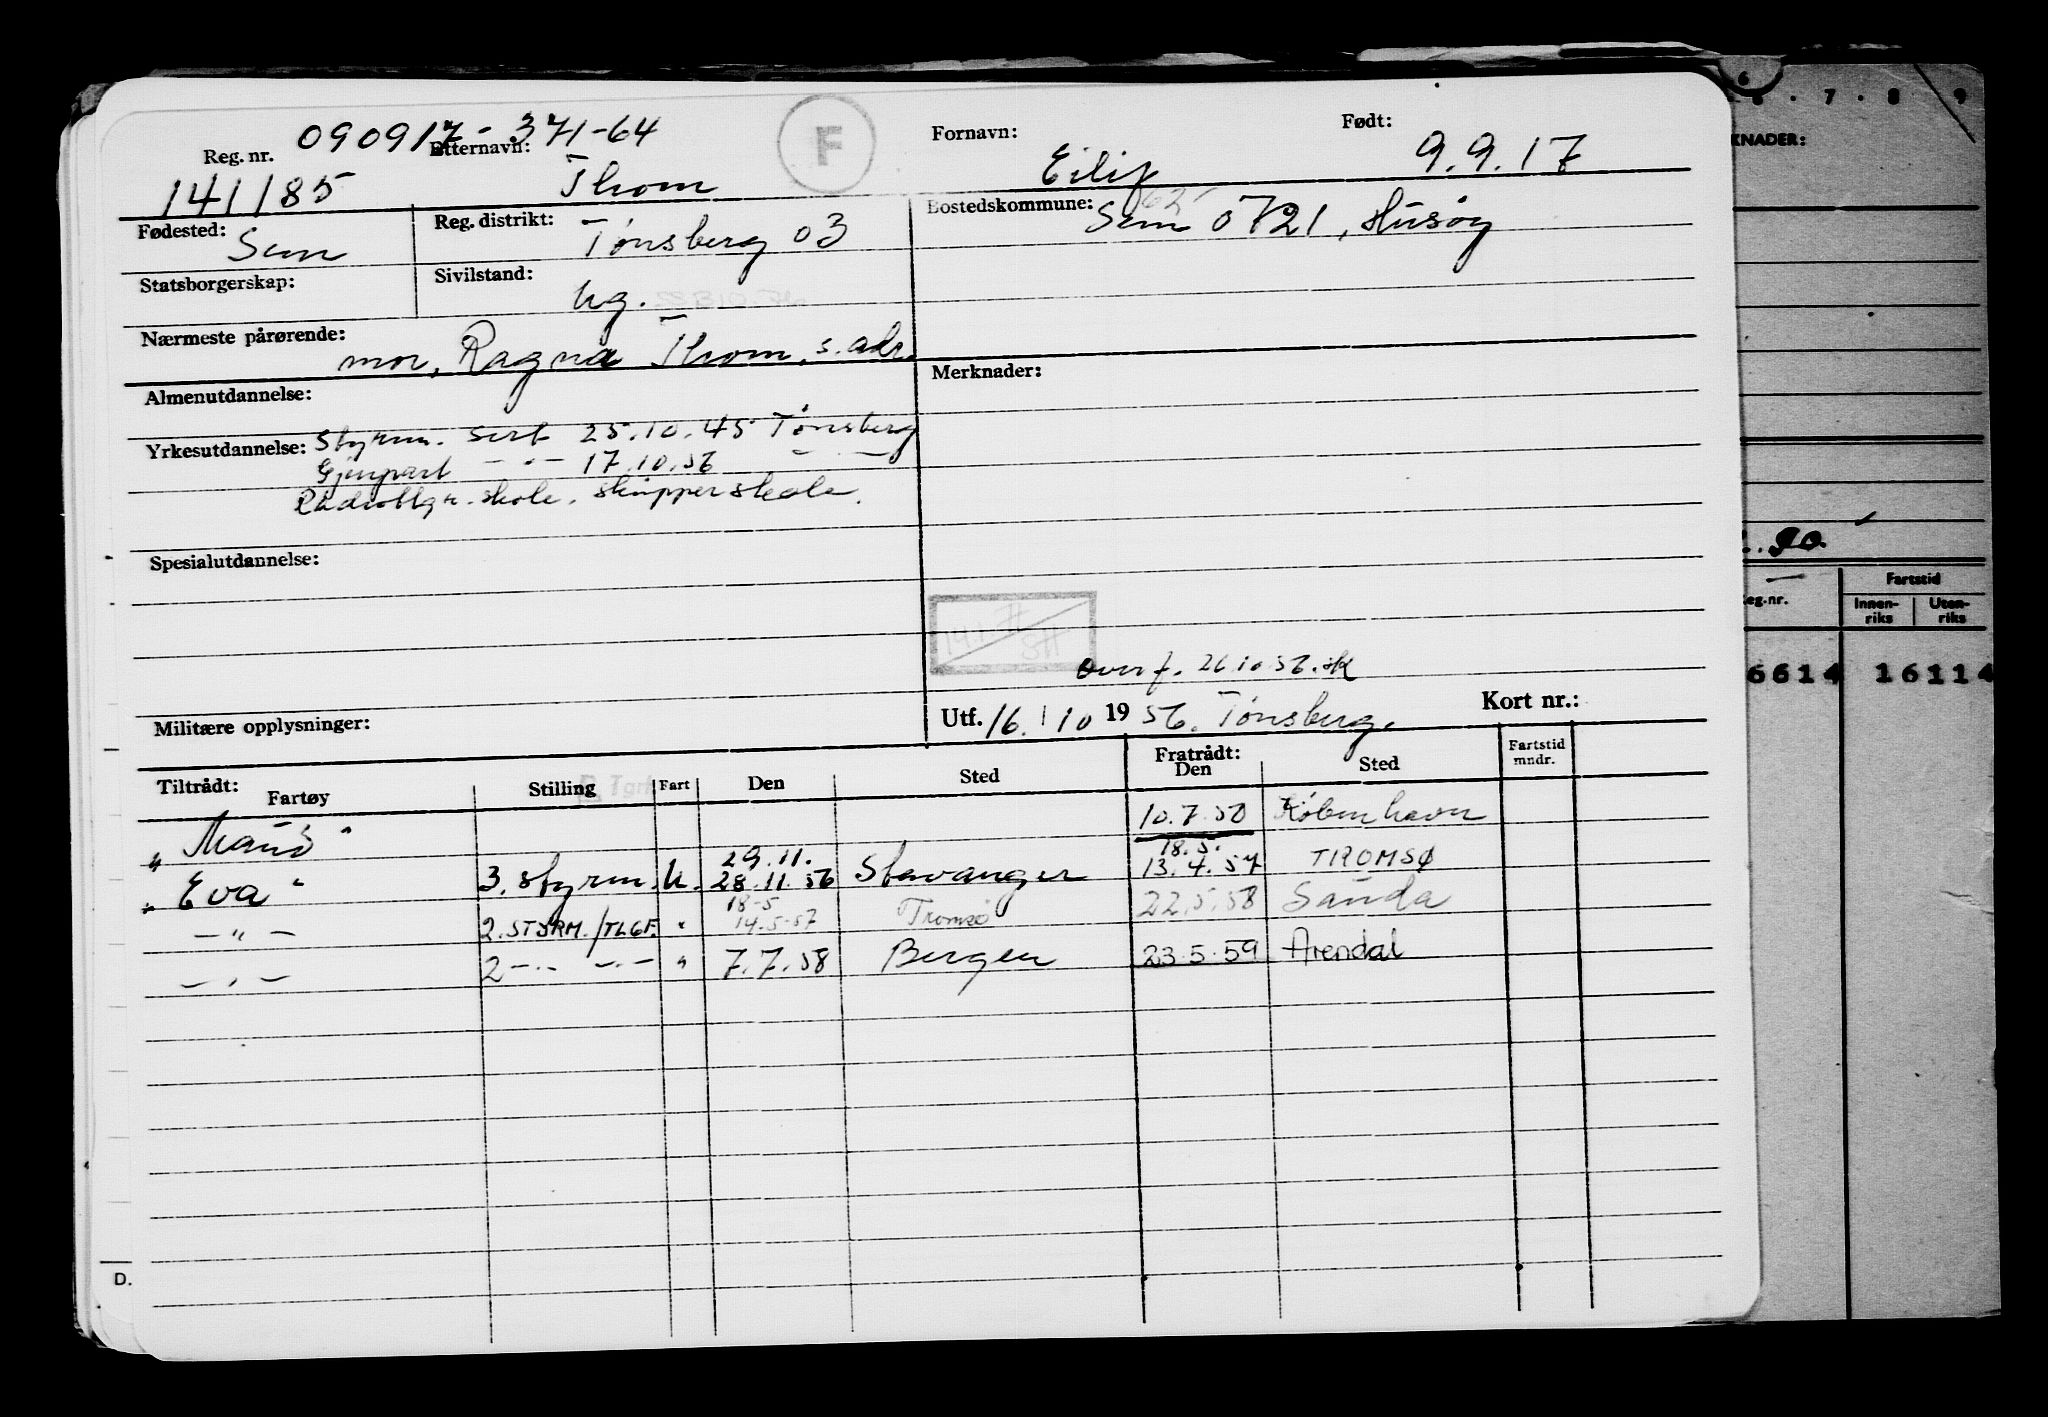 090917-371-64
F
Reg. nr. 141185
Etternavn: Thom
Fornavn: Eilif
Født: 9.9.17
Fødested: Sem
Reg. distrikt: Tønsberg 03
Bostedskommune: Sem 0721, Husøy
Statsborgerskap:
Sivilstand: ug.
Nærmeste pårørende: mor, Ragna Thom, s. adr.
Merknader:
Almenutdannelse:
Yrkesutdannelse: Styrm. sert 25.10.45 Tønsberg
Gjenpart - " - 17.10.56 - " -
skole. skipperskole.
Spesialutdannelse:
Overf. 26.10.56. sk
Militære opplysninger:
Utf. 16. / 10 19 56. Tønsberg.
Kort nr.:
Tiltrådt: Fartøy Stilling Fart Den Sted Fratrådt: Den Sted Fartstid mndr.
" " 10.7.56 København
29.11. 18.5.
" Eva " 3. styrm. u. 28.11.56 Stavanger 13.4.57 TROMSØ
18-5
- " - 2. STYRM./TLGF. " 14.5.57 Tromsø 22.5.58 Sauda
- " - 2 - " - - " - " 7.7.58 Bergen 23.5.59 Arendal
D.
6 . 7 . 8 . 9
KNADER:
90.
eg.nr.
Fartstid
Innen-riks Uten-riks
6614 16114